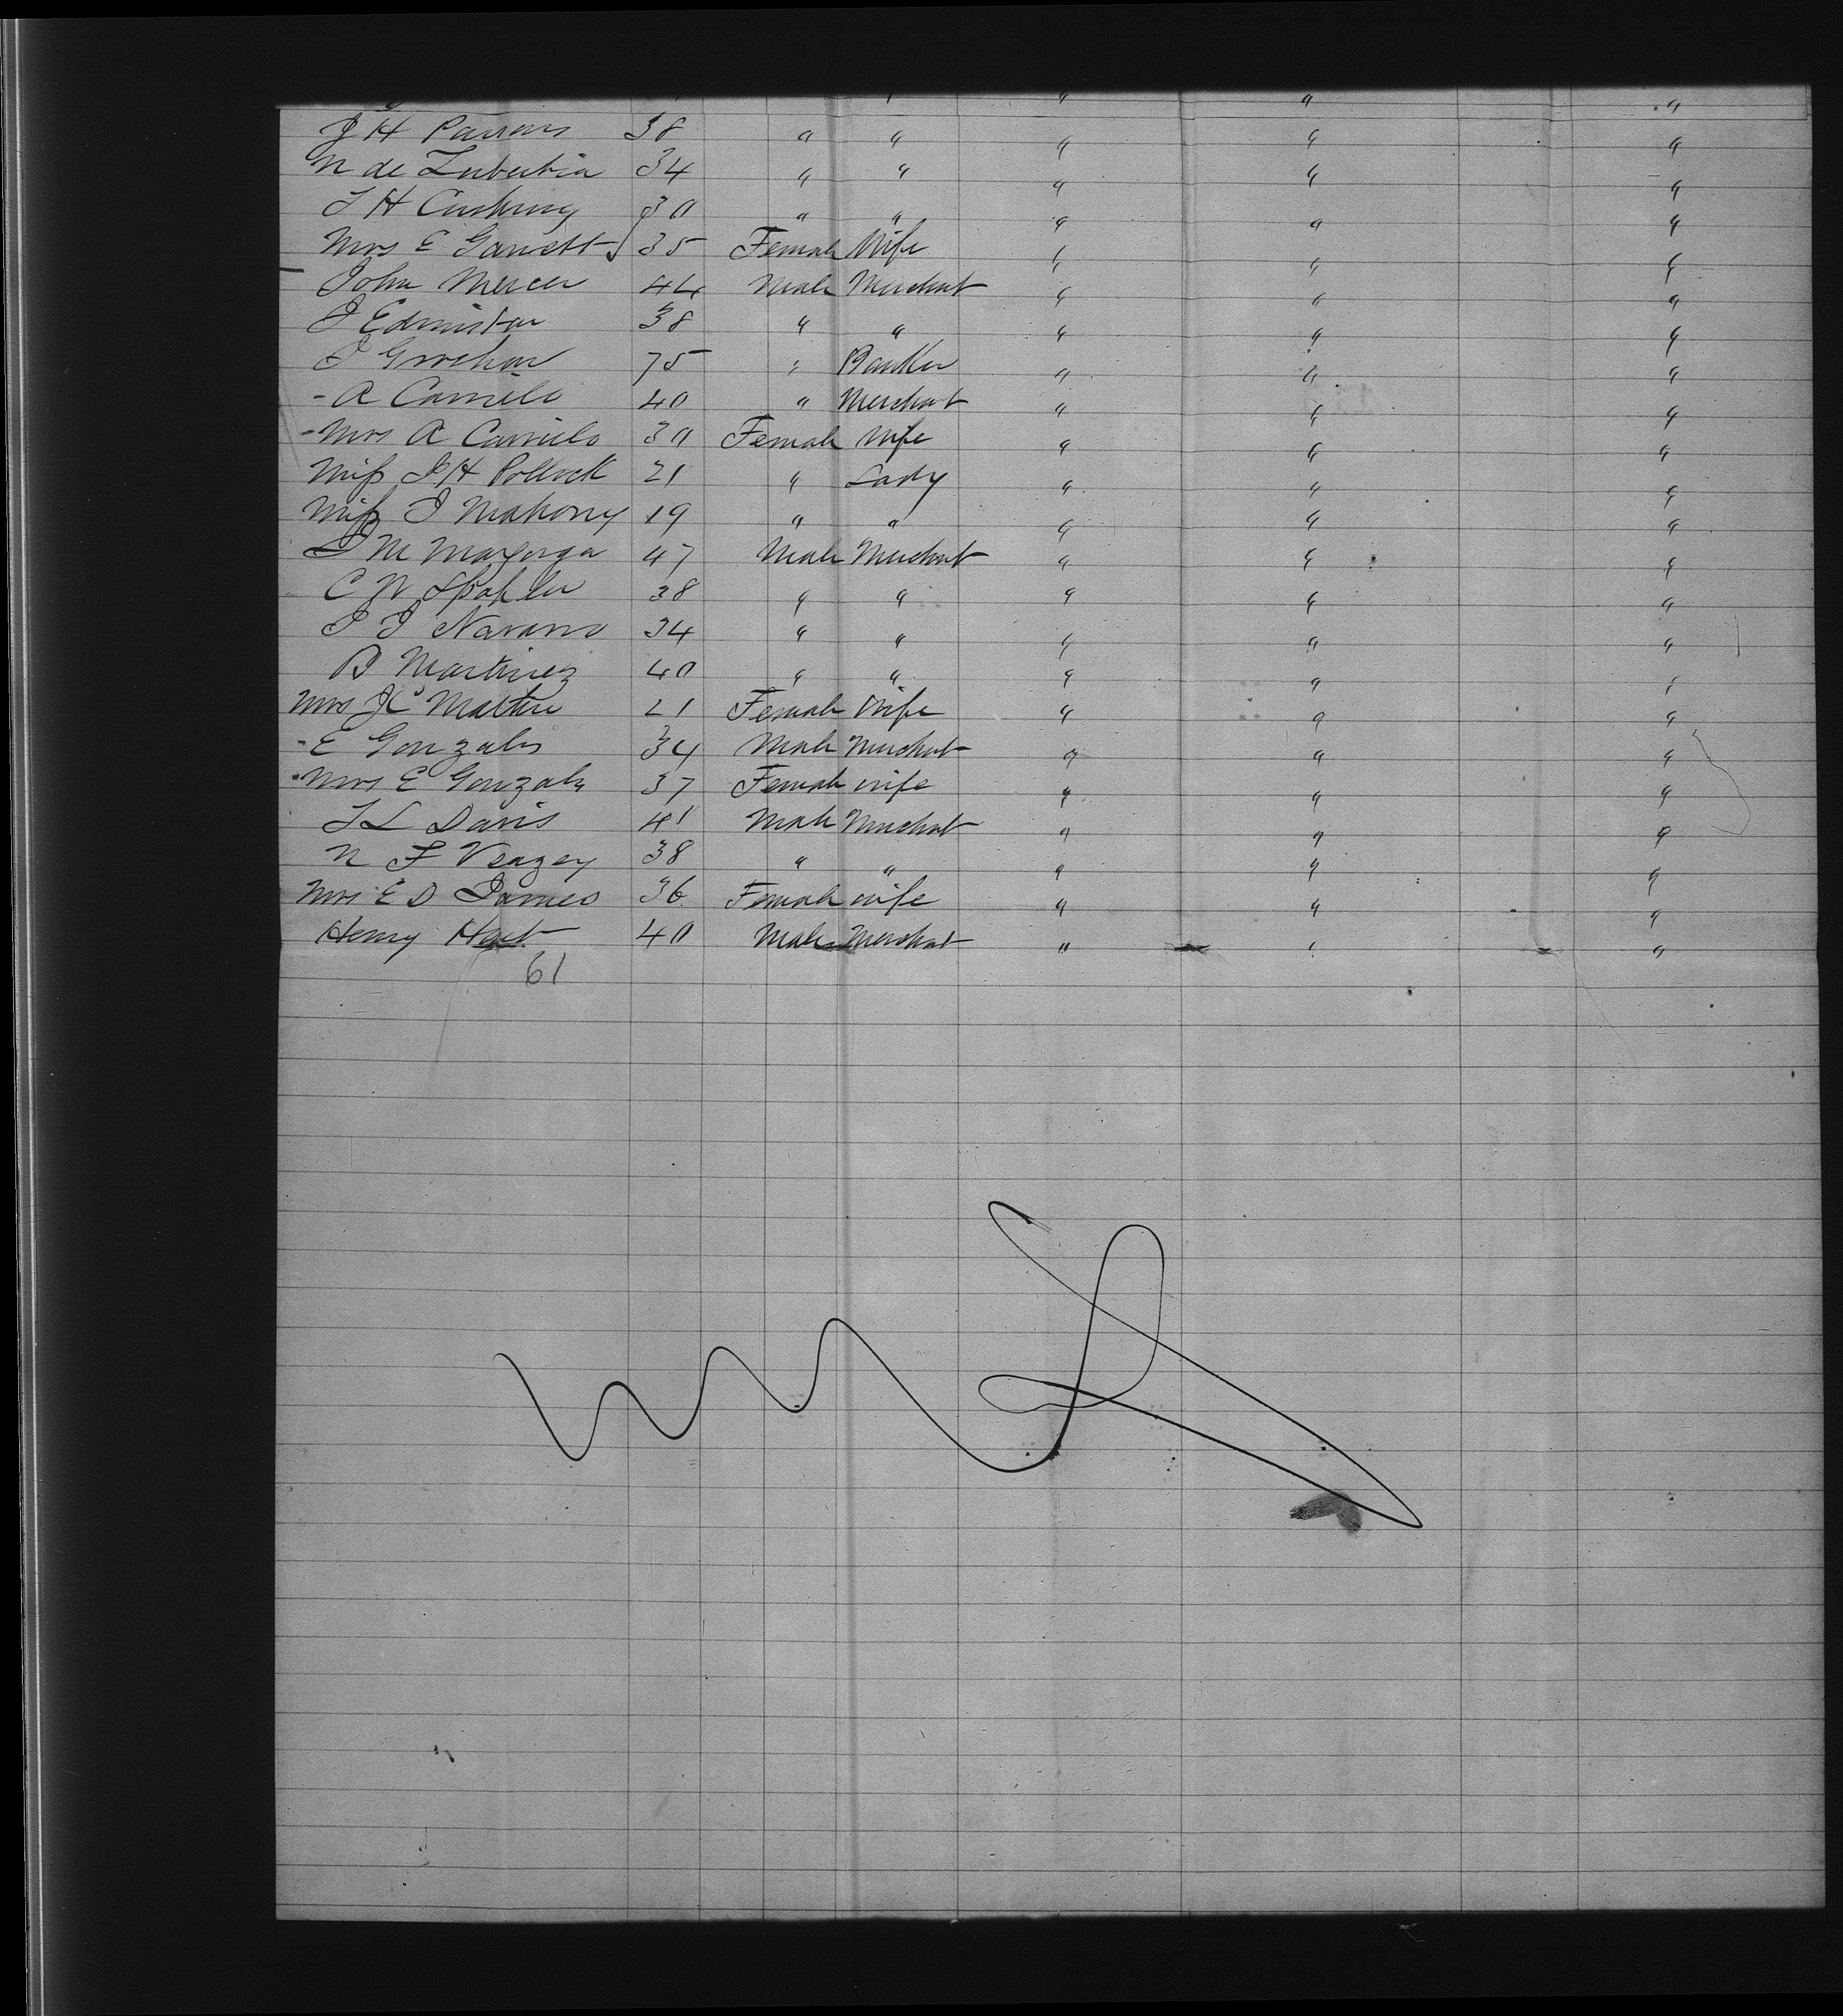 J H Parsons 38 " " " " "
N de Zubertia 34 " " " " "
T H Cushing 30 " " " " "
Mrs E Garrett 35 Female Wife " " "
John Mercer 44 Male Merchant " " "
J Edminston 38 " " " " "
J Groshon 75 " Banker " " "
- A Carrillo 40 " Merchant " " "
- Mrs A Carrillo 30 Female Wife " " "
Miss J H Pollock 21 " Lady " " "
Miss J Mahony 19 " " " " "
J M Mayorga 47 Male Merchant " " "
C W 38 " " " " "
J J Navarro 34 " " " " "
B Martinez 40 " " " " "
Mrs J C 21 Female Wife " " "
- E Gonzales 34 Male Merchant " " "
- Mrs E Gonzales 37 Female Wife " " "
T L Davis 41 Male Merchant " " "
N F Veazey 38 " " " " "
Mrs E D James 36 Female Wife " " "
Henry Hart 40 Male Merchant " " "
61